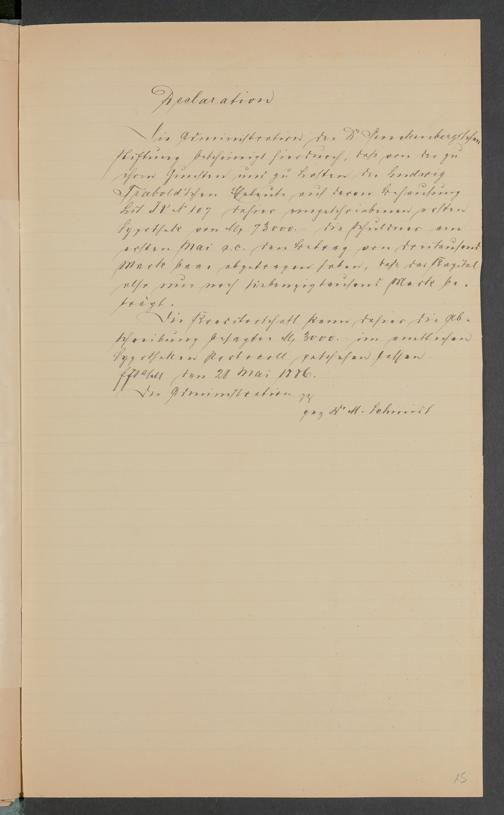 Declaration
Die Administration der Dr Senckenbergischen
Stiftung bescheinigt hierdurch, daß von der zu
ihren Gunsten und zu Lasten der Ludwig
Trabold'schen Eheleute auf deren Behausung
Lit N No 107 dahier eingeschriebenen ersten
Hypothek von M 73000.- die Schuldner am
ersten Mai a.c. den Betrag von dreitausend
Mark baar abgetragen haben, daß das Kapital
also nur noch siebenzigtausend Mark be-
trägt.
Die Kreditorschaft kann daher die Ab-
schreibung besagter M 3000.- im amtlichen
Hypotheken Protocoll geschehen lassen
Ff a/M den 28 Mai 1886.
Die Administration
gez Dr M. Schmidt
15